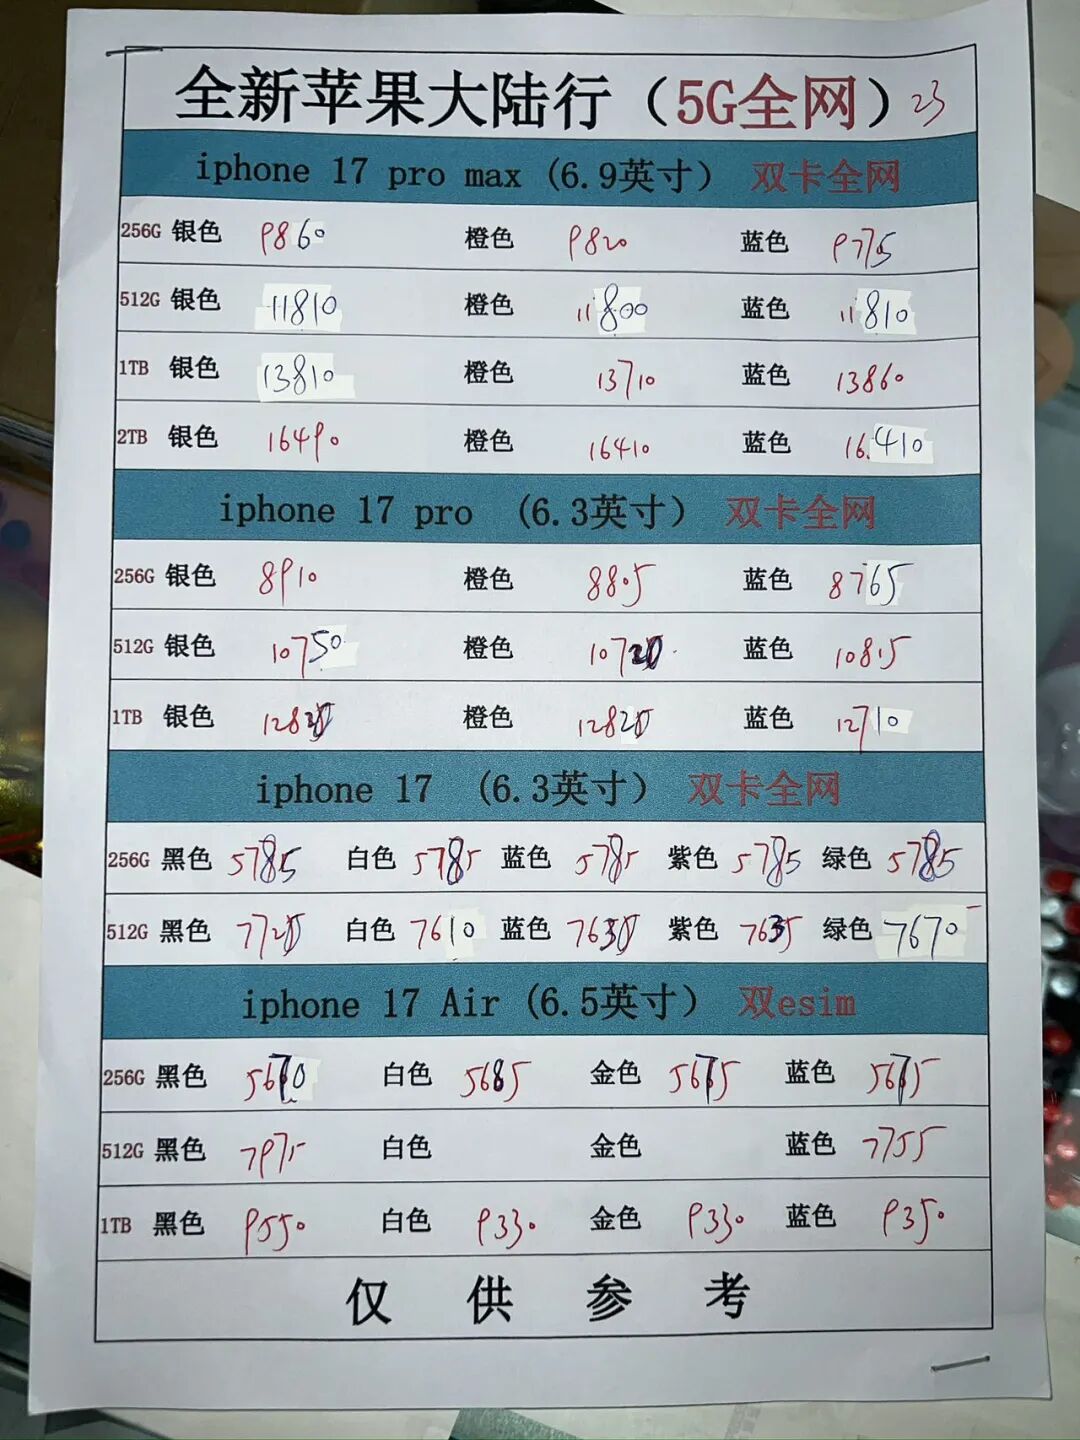 全新苹果大陆行（5G全网）23
iphone 17 pro max (6.9英寸） 双卡全网
256G 银色 9860 橙色 9820 蓝色 9775
512G 银色 11810 橙色 11800 蓝色 11810
1TB 银色 13810 橙色 13710 蓝色 13860
2TB 银色 16490 橙色 16410 蓝色 16410
iphone 17 pro (6.3英寸） 双卡全网
256G 银色 8910 橙色 8805 蓝色 8765
512G 银色 10750 橙色 10720 蓝色 10815
1TB 银色 橙色 12820 蓝色 12710
iphone 17 (6.3英寸） 双卡全网
256G 黑色 5785 白色 5785 蓝色 5785 紫色 5785 绿色 5785
512G 黑色 7720 白色 7610 蓝色 7630 紫色 7635 绿色 7670
iphone 17 Air (6.5英寸） 双esim
256G 黑色 5670 白色 5685 金色 5675 蓝色 5675
512G 黑色 7975 白色 金色 蓝色 7755
1TB 黑色 9550 白色 9330 金色 9330 蓝色 9350
仅供参考